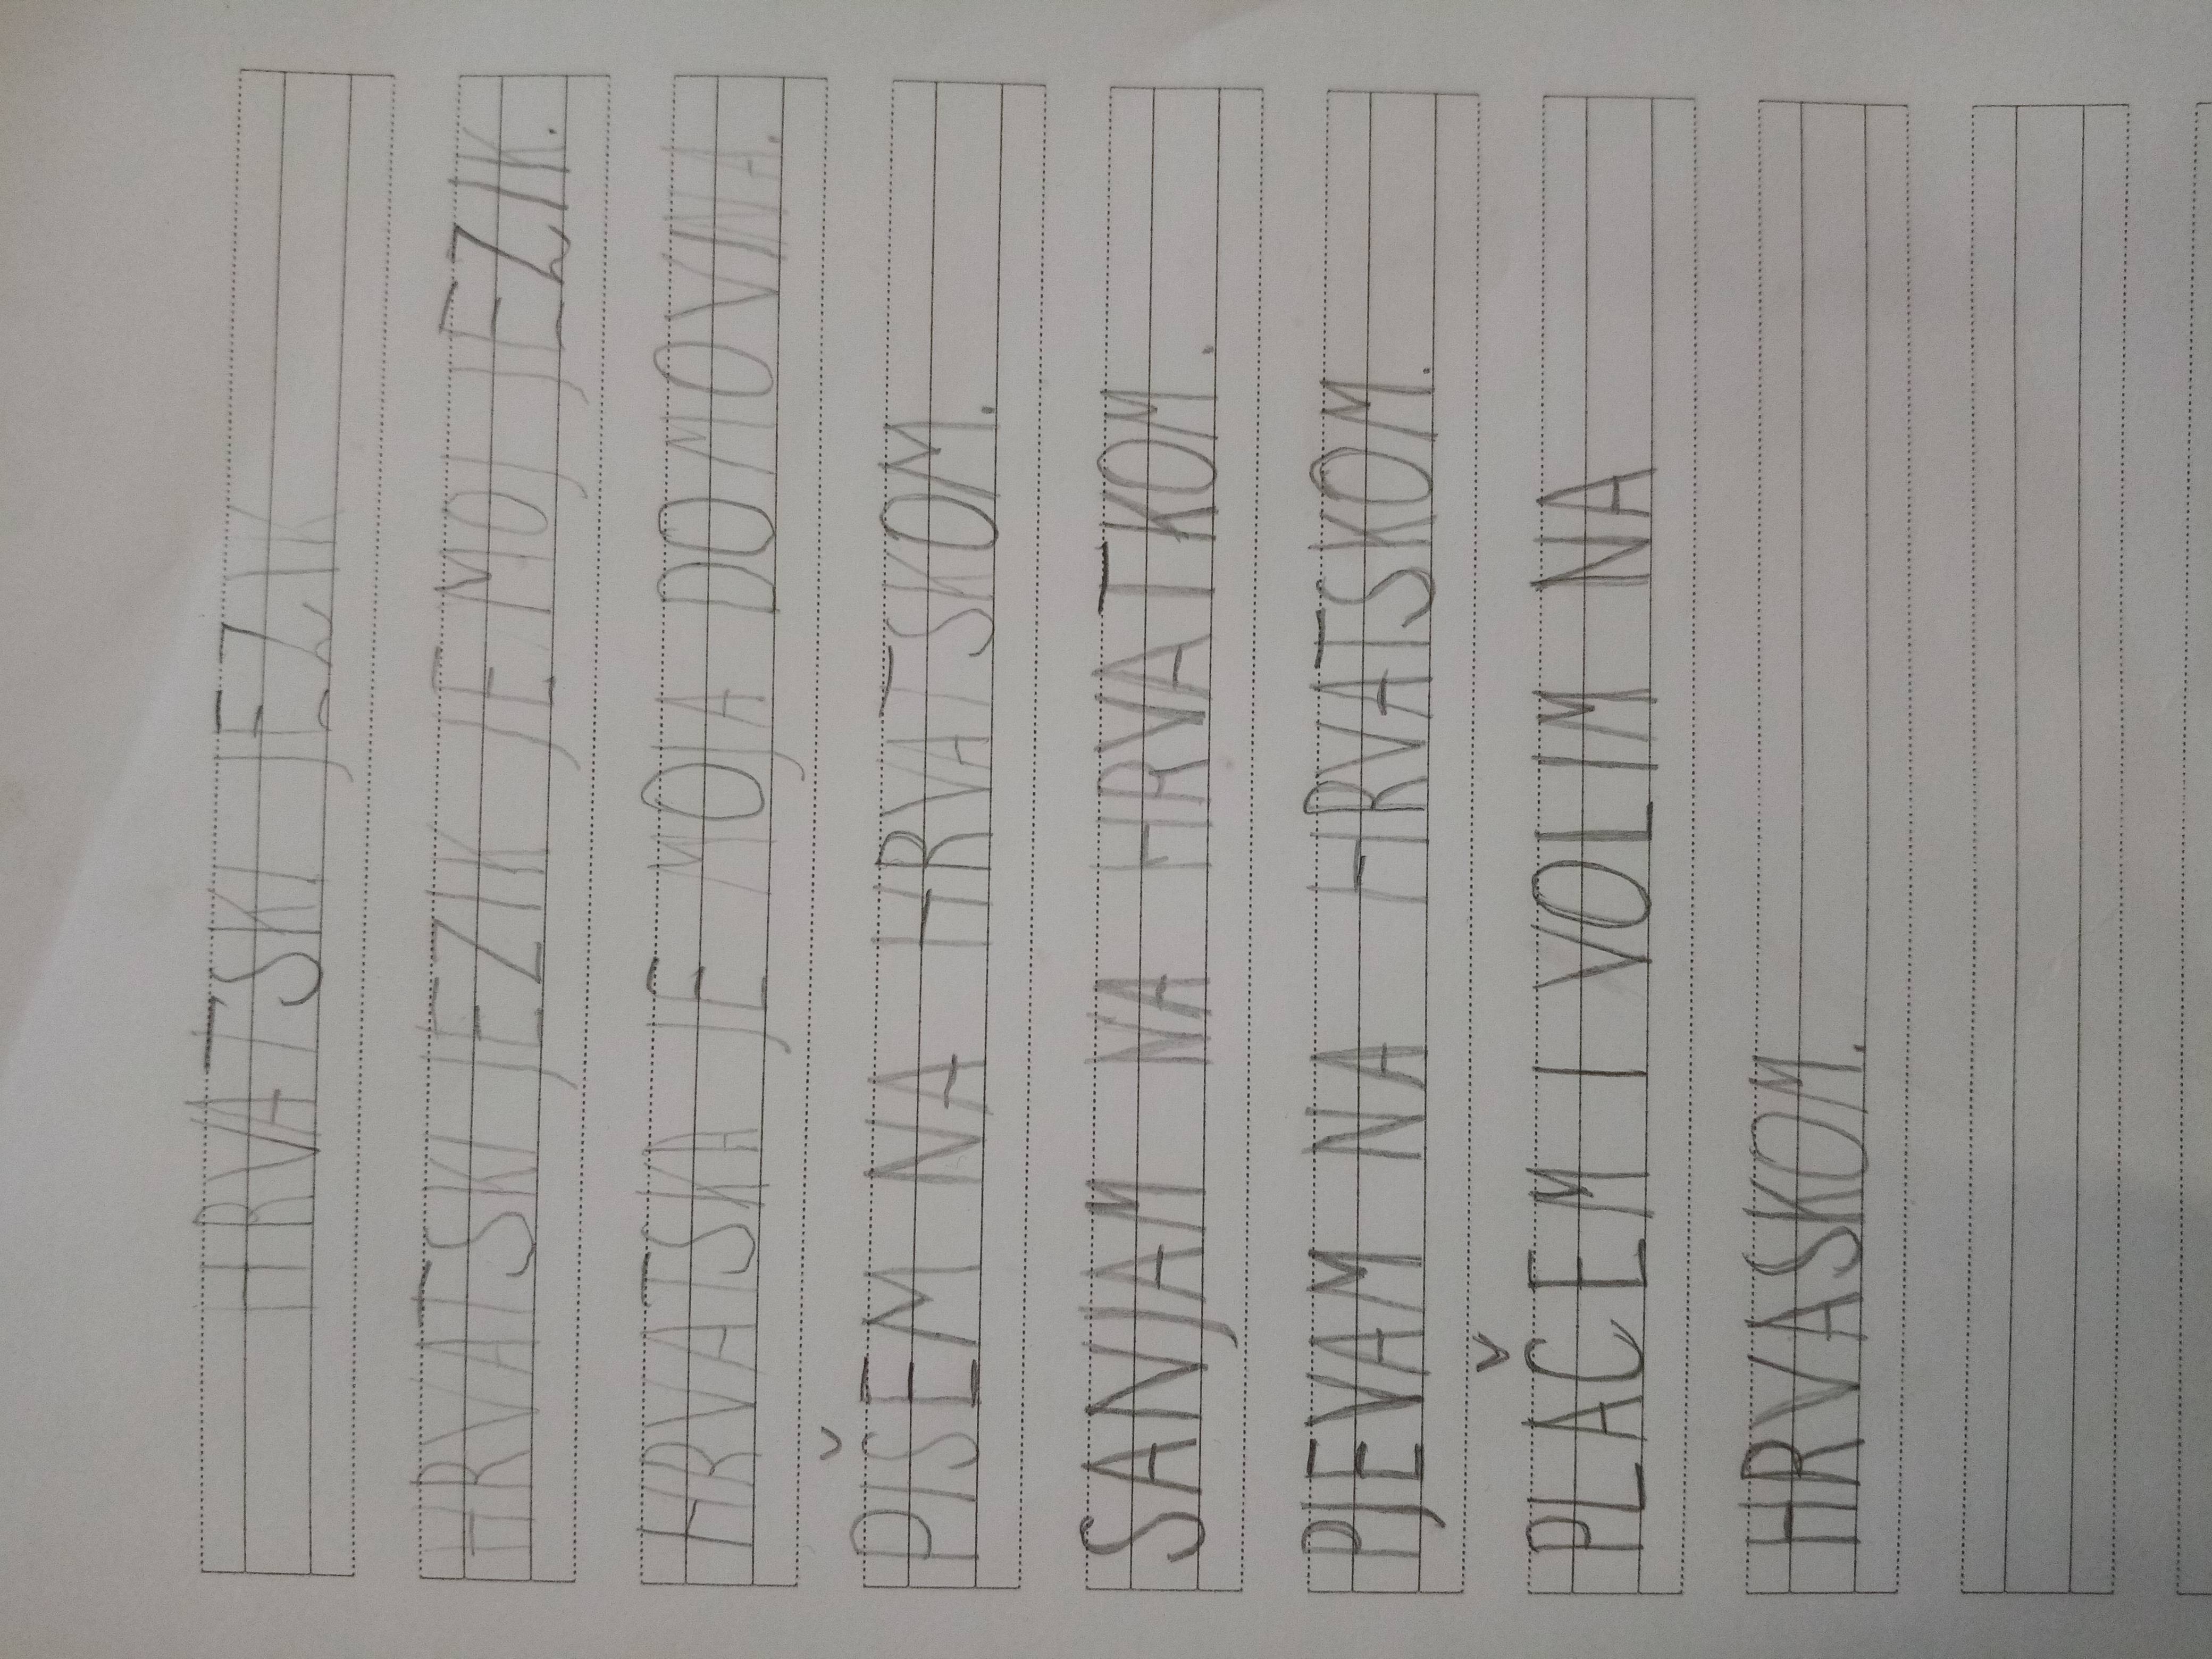 HRVATSKI JEZIK
HRVATSKI JEZIK JE MOJ JEZIK.
HRVATSKA JE MOJA DOMOVINA.
PIŠEM NA HRVATSKOM.
SANJAM NA HRVATKOM.
PJEVAM NA HRVATSKOM.
PLAČEM I VOLIM NA
HRVASKOM.